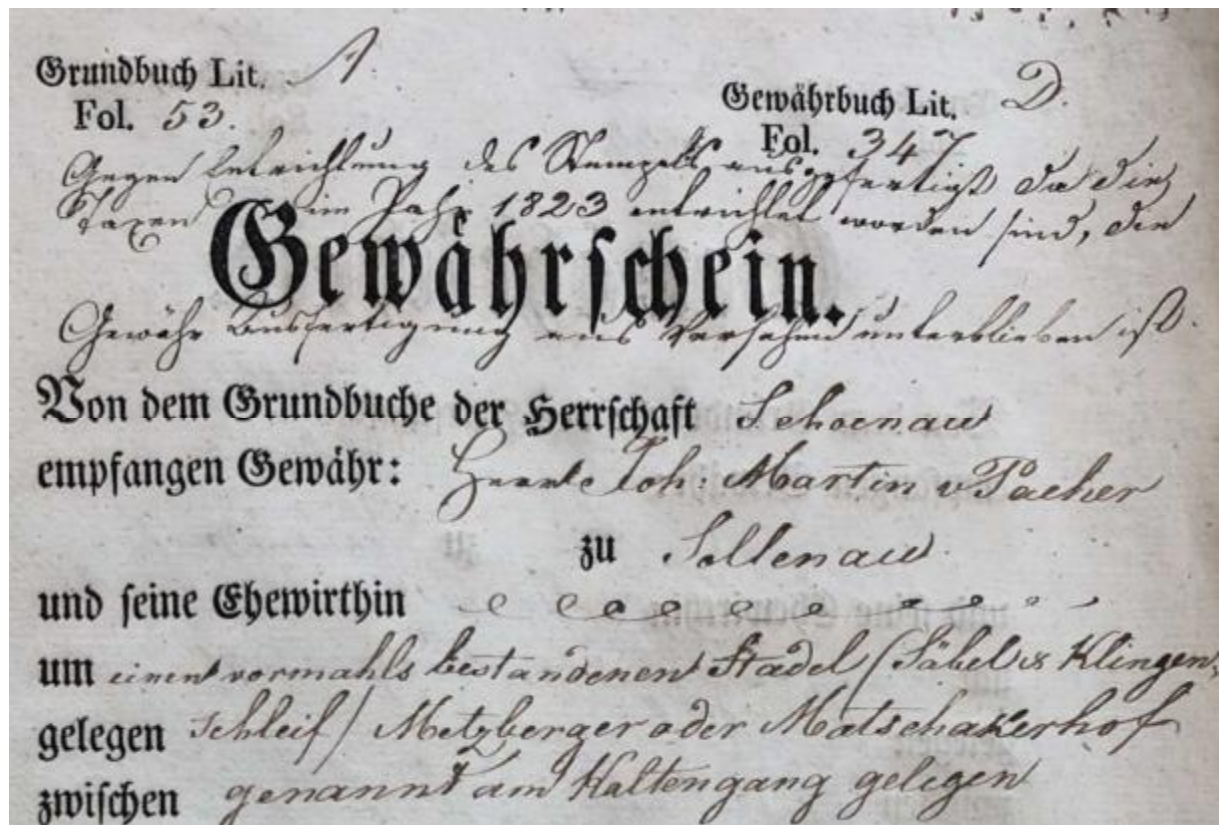 Grundbuch Lit. A.
Fol. 53.
Gewährbuch Lit. D.
Fol. 347
Gegen Entrichtung des Stempels ausgefertigt da die
Taxen im Jahr 1823 entrichtet worden sind, die
Gewährschein.
Gewähr Ausfertigung aus Versehen unterblieben ist.
Von dem Grundbuche der Herrschaft Schoenau
empfangen Gewähr: Herr Joh: Martin v Pacher
zu Sollenau
und seine Ehewirthin
um einen vormahls bestandenen Stadel (Säbel & Klingen-
gelegen Schleif/ Metzberger oder Matschakerhof
zwischen genannt am Kaltengang gelegen